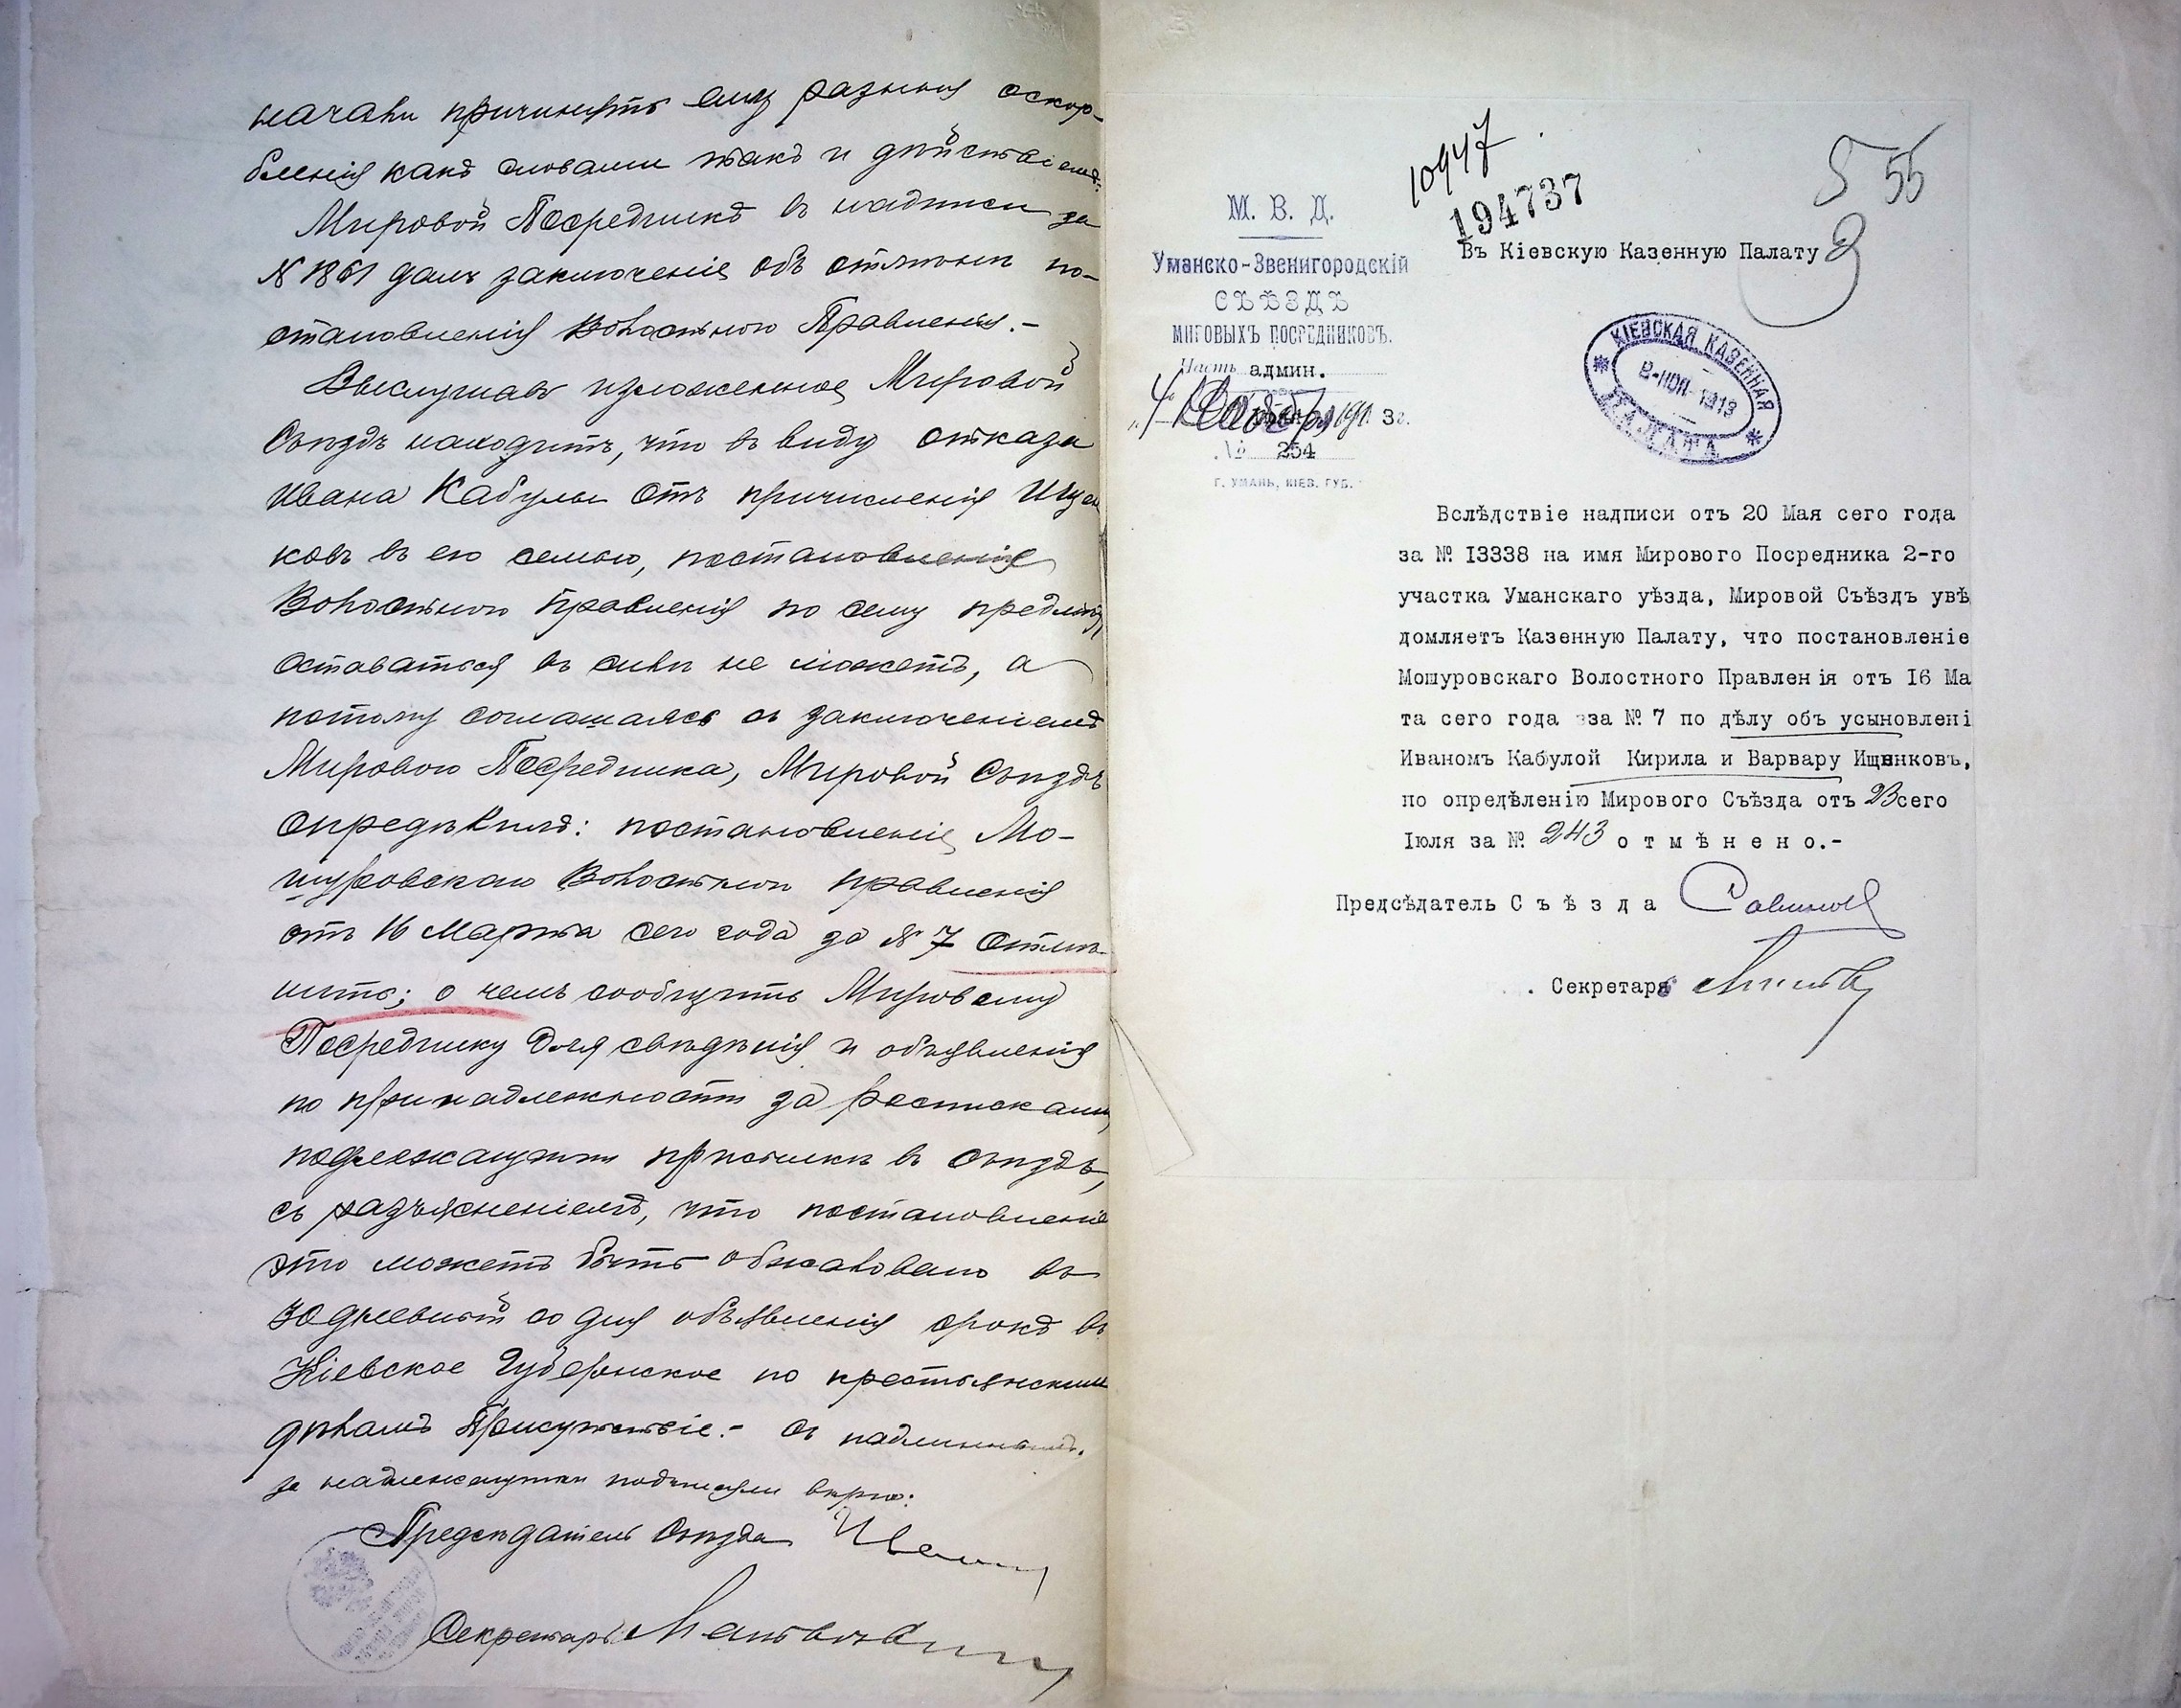 начали причинять ему разныя оскор-
бленія какъ словами такъ и дѣйствіемъ.
Мировой Посредникъ въ надписи за
№ 1861 далъ заключеніе объ отмѣнѣ по-
становленія Волостного Правленія.-
Выслушавъ изложенное, Мировой
Съѣздъ находитъ, что въ виду отказа
Ивана Кабулы отъ причисленія Ищен
ковъ въ его семью, постановленіе
Волостного Правленія по сему предмету
оставаться въ силѣ не можетъ, а
потому соглашаясь съ заключеніемъ
Мирового Посредника, Мировой Съѣздъ
опредѣлилъ: постановленіе Мо-
шуровскаго Волостного правленія
отъ 16 Марта сего года за № 7 отмѣ-
нить; о чемъ сообщить Мировому
Посреднику для свѣдѣнія и объявленія
по принадлежности за росписками,
подлежащими присылкѣ въ съѣздъ,
съ разъясненіемъ, что постановленіе
это можетъ быть обжаловано въ
30 дневный со дня объявленія срокъ въ
Кіевское Губернское по крестьянскимъ
дѣламъ Присутствіе.- Съ подлиннымъ.
за надлежащими подписями вѣрно:
Предсѣдатель Съѣзда
Секретарь
10947
194737
5 55
М. В. Д.
Уманско-Звенигородскій
СЪѢЗДЪ
МИРОВЫХЪ ПОСРЕДНИКОВЪ.
Часть админ.
4 Ноября 191 3 г.
№ 254
Г. УМАНЬ, КІЕВ. ГУБ.
Въ Кіевскую Казенную Палату
КІЕВСКАЯ КАЗЕННАЯ
8-НОЯ-1913
ПАЛАТА
Вслѣдствіе надписи отъ 20 Мая сего года
за № I3338 на имя Мирового Посредника 2-го
участка Уманскаго уѣзда, Мировой Съѣздъ увѣ
домляетъ Казенную Палату, что постановленіе
Мошуровскаго Волостного Правленія отъ I6 Ма
та сего года за № 7 по дѣлу объ усыновлені
Иваномъ Кабулой Кирила и Варвару Ищенковъ,
по опредѣленію Мирового Съѣзда отъ 23 сего
Іюля за № 243 о т м ѣ н е н о.-
Предсѣдатель С ъ ѣ з д а
Секретаря